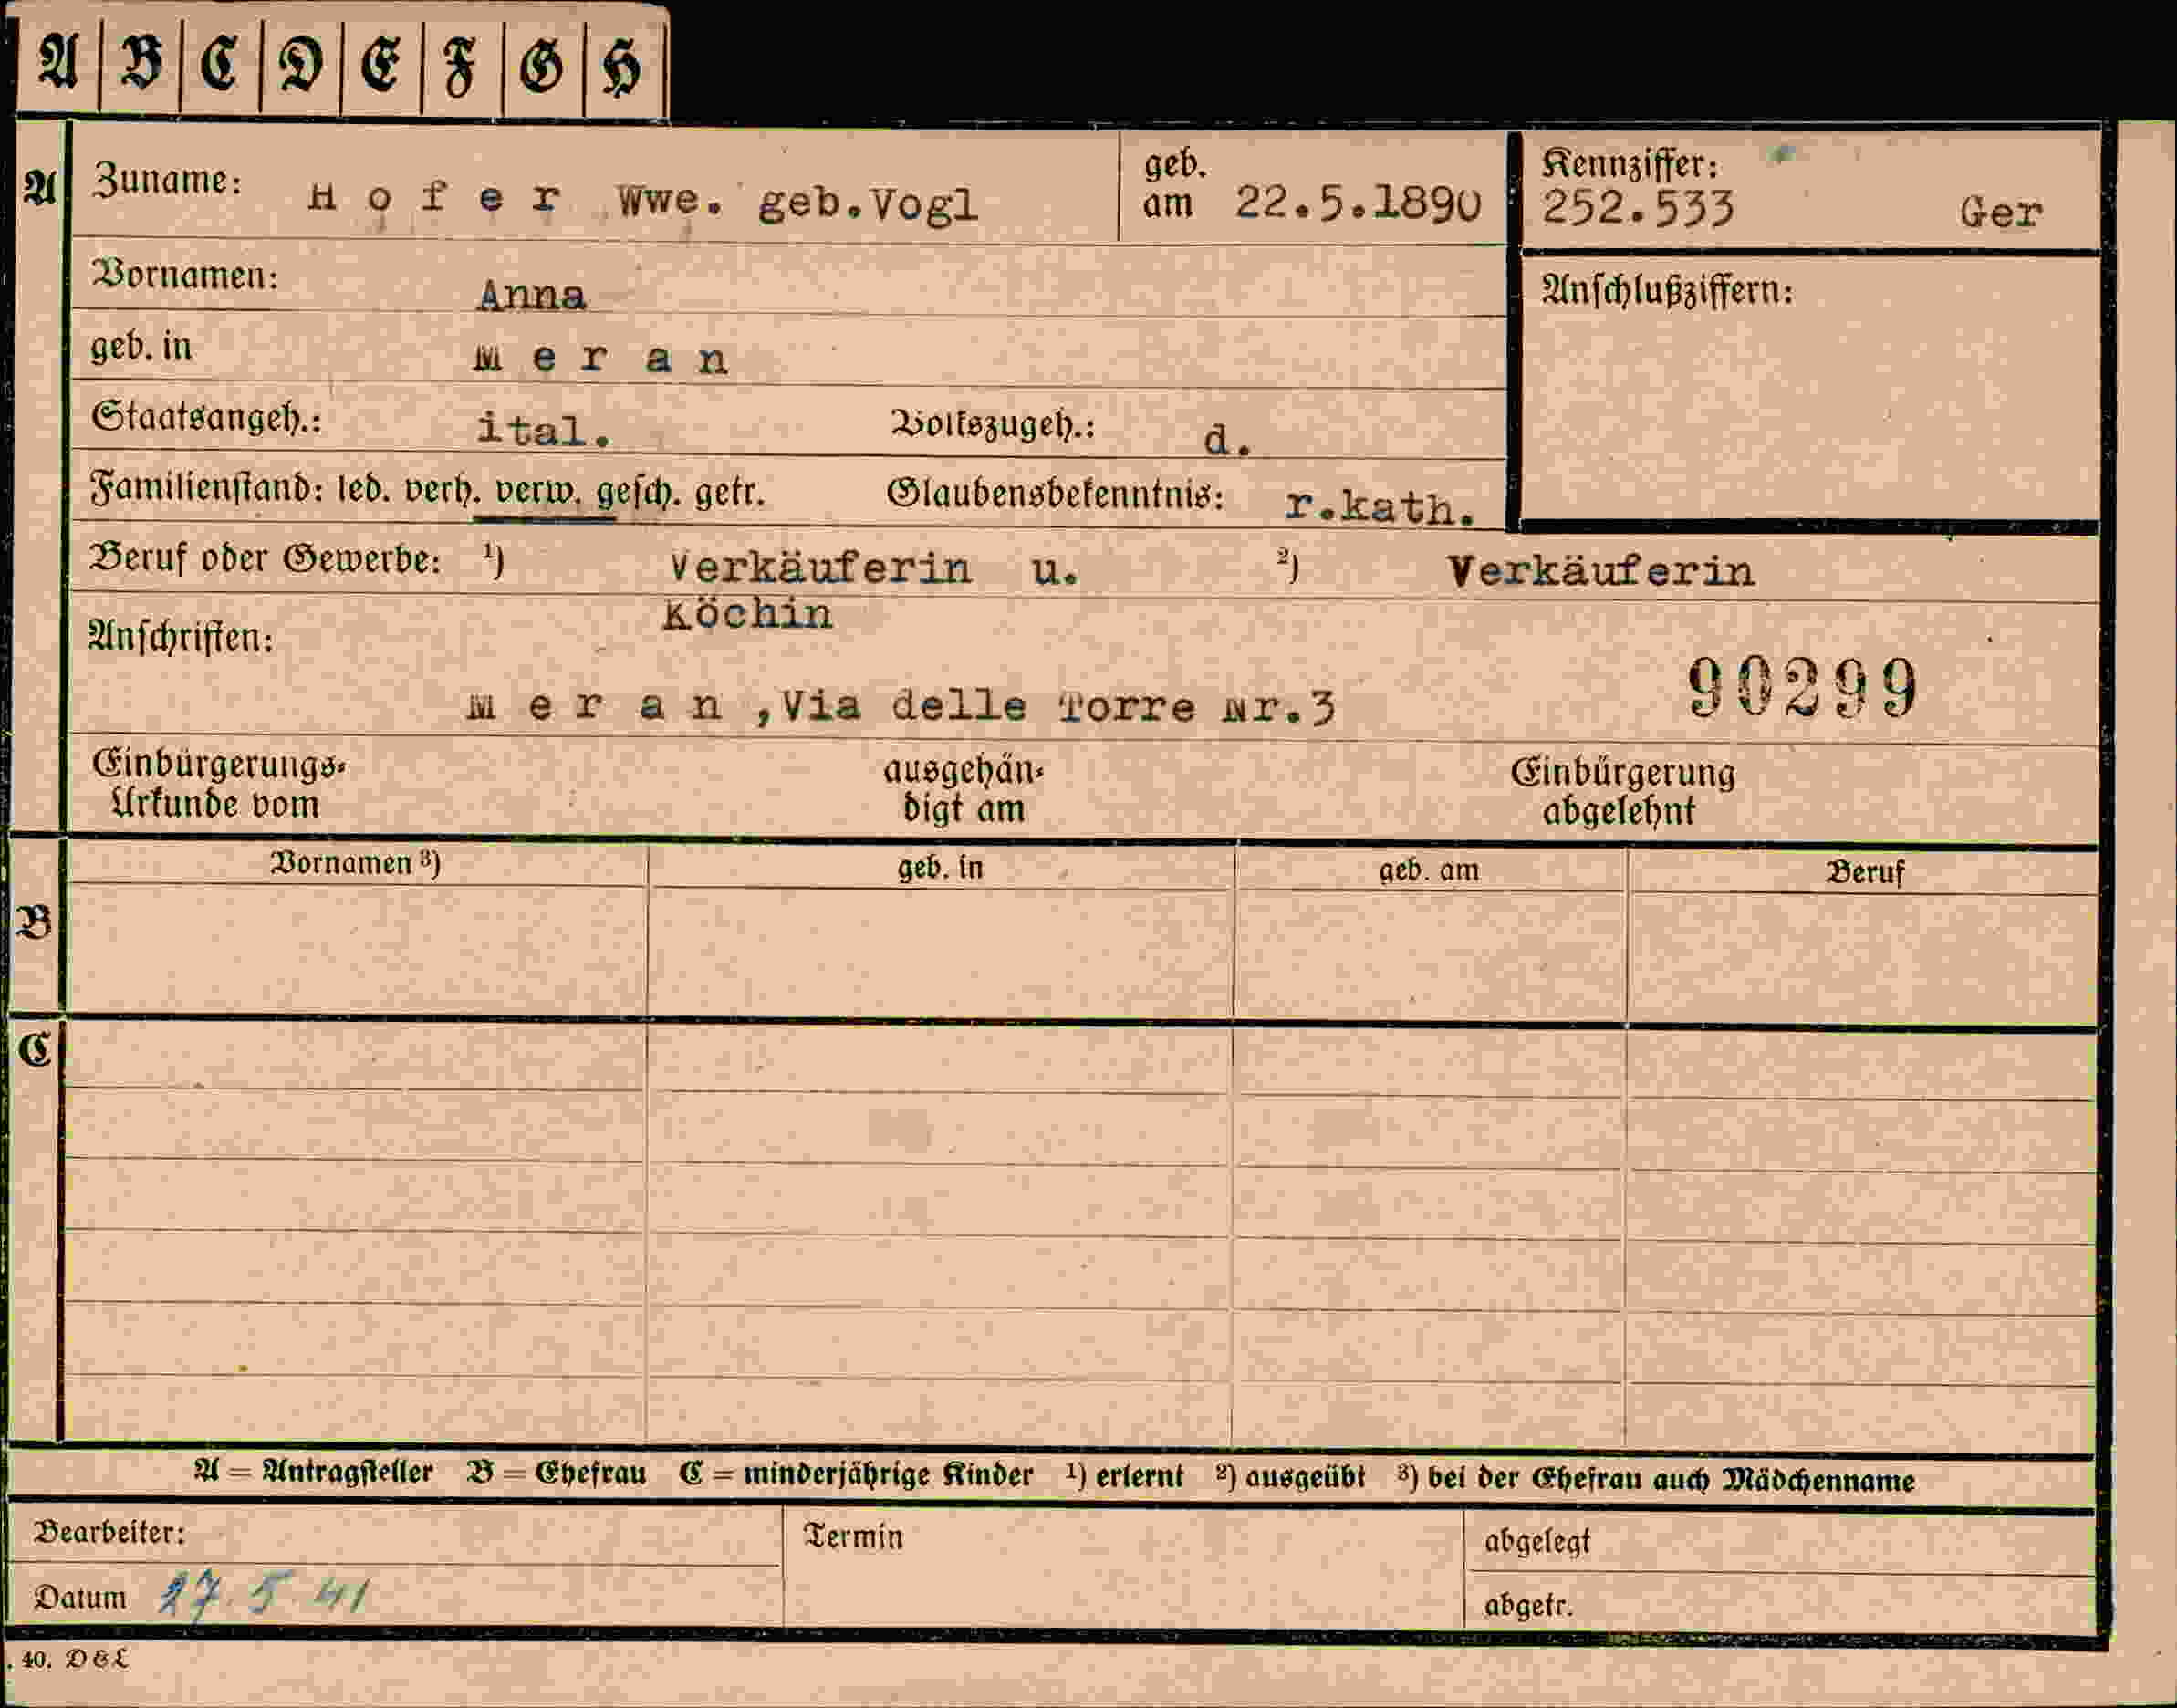 A B C D E F G H
A Zuname: Hofer Wwe. geb.Vogl geb. am 22.5.1890 Kennziffer: 252.533 Ger
Vornamen: Anna Anschlußziffern:
geb. in Meran
Staatsangeh.: ital. Volkszugeh.: d.
Familienstand: led. verh. verw. gesch. getr. Glaubensbekenntnis: r.kath.
Beruf oder Gewerbe: ¹) Verkäuferin u. ²) Verkäuferin
Köchin
Anschriften:
90299
Meran,Via delle Torre Nr.3
Einbürgerungs- ausgehän- Einbürgerung
Urkunde vom digt am abgelehnt
Vornamen ³) geb. in geb. am Beruf
B
C
A = Antragsteller B = Ehefrau C = minderjährige Kinder ¹) erlernt ²) ausgeübt ³) bei der Ehefrau auch Mädchenname
Bearbeiter: Termin abgelegt
Datum 27.5.41 abgetr.
. 40. D & L